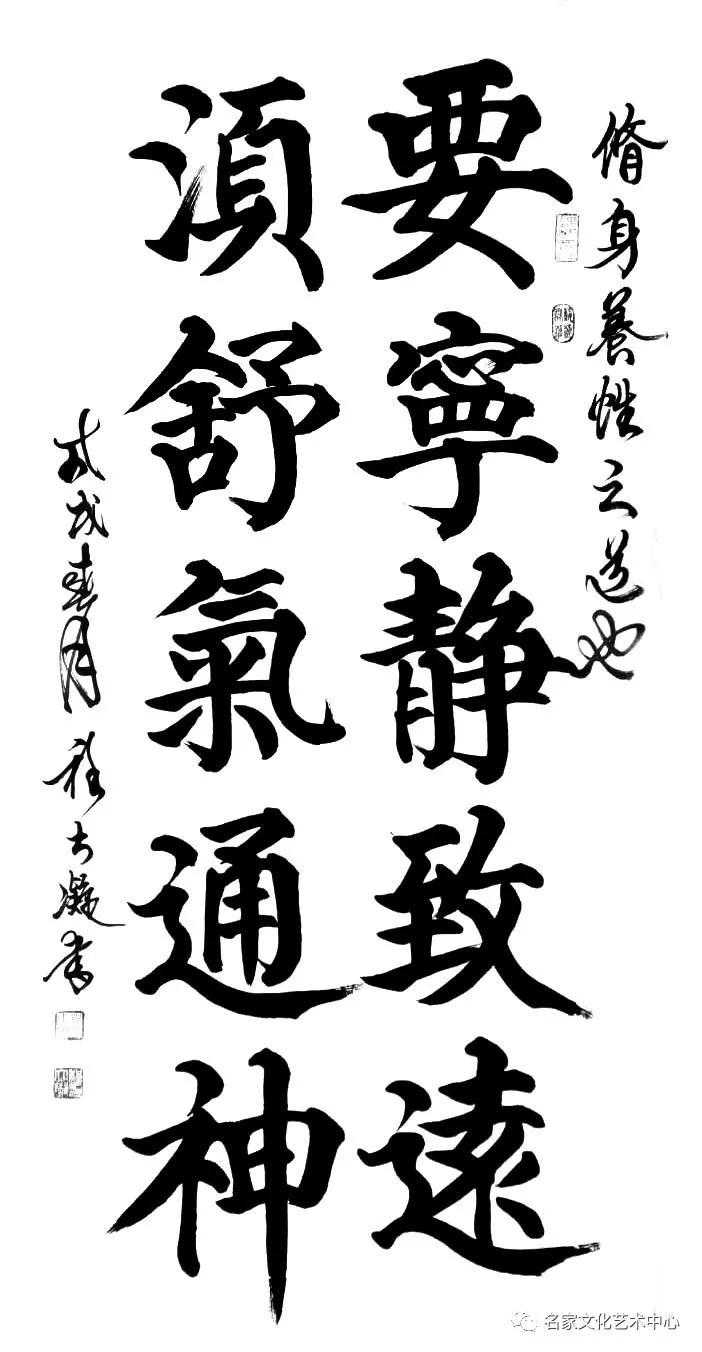 脩身養性之道也
要寧静致遠
湏舒氣通神
戊戌春月程大凝書
名家文化艺术中心